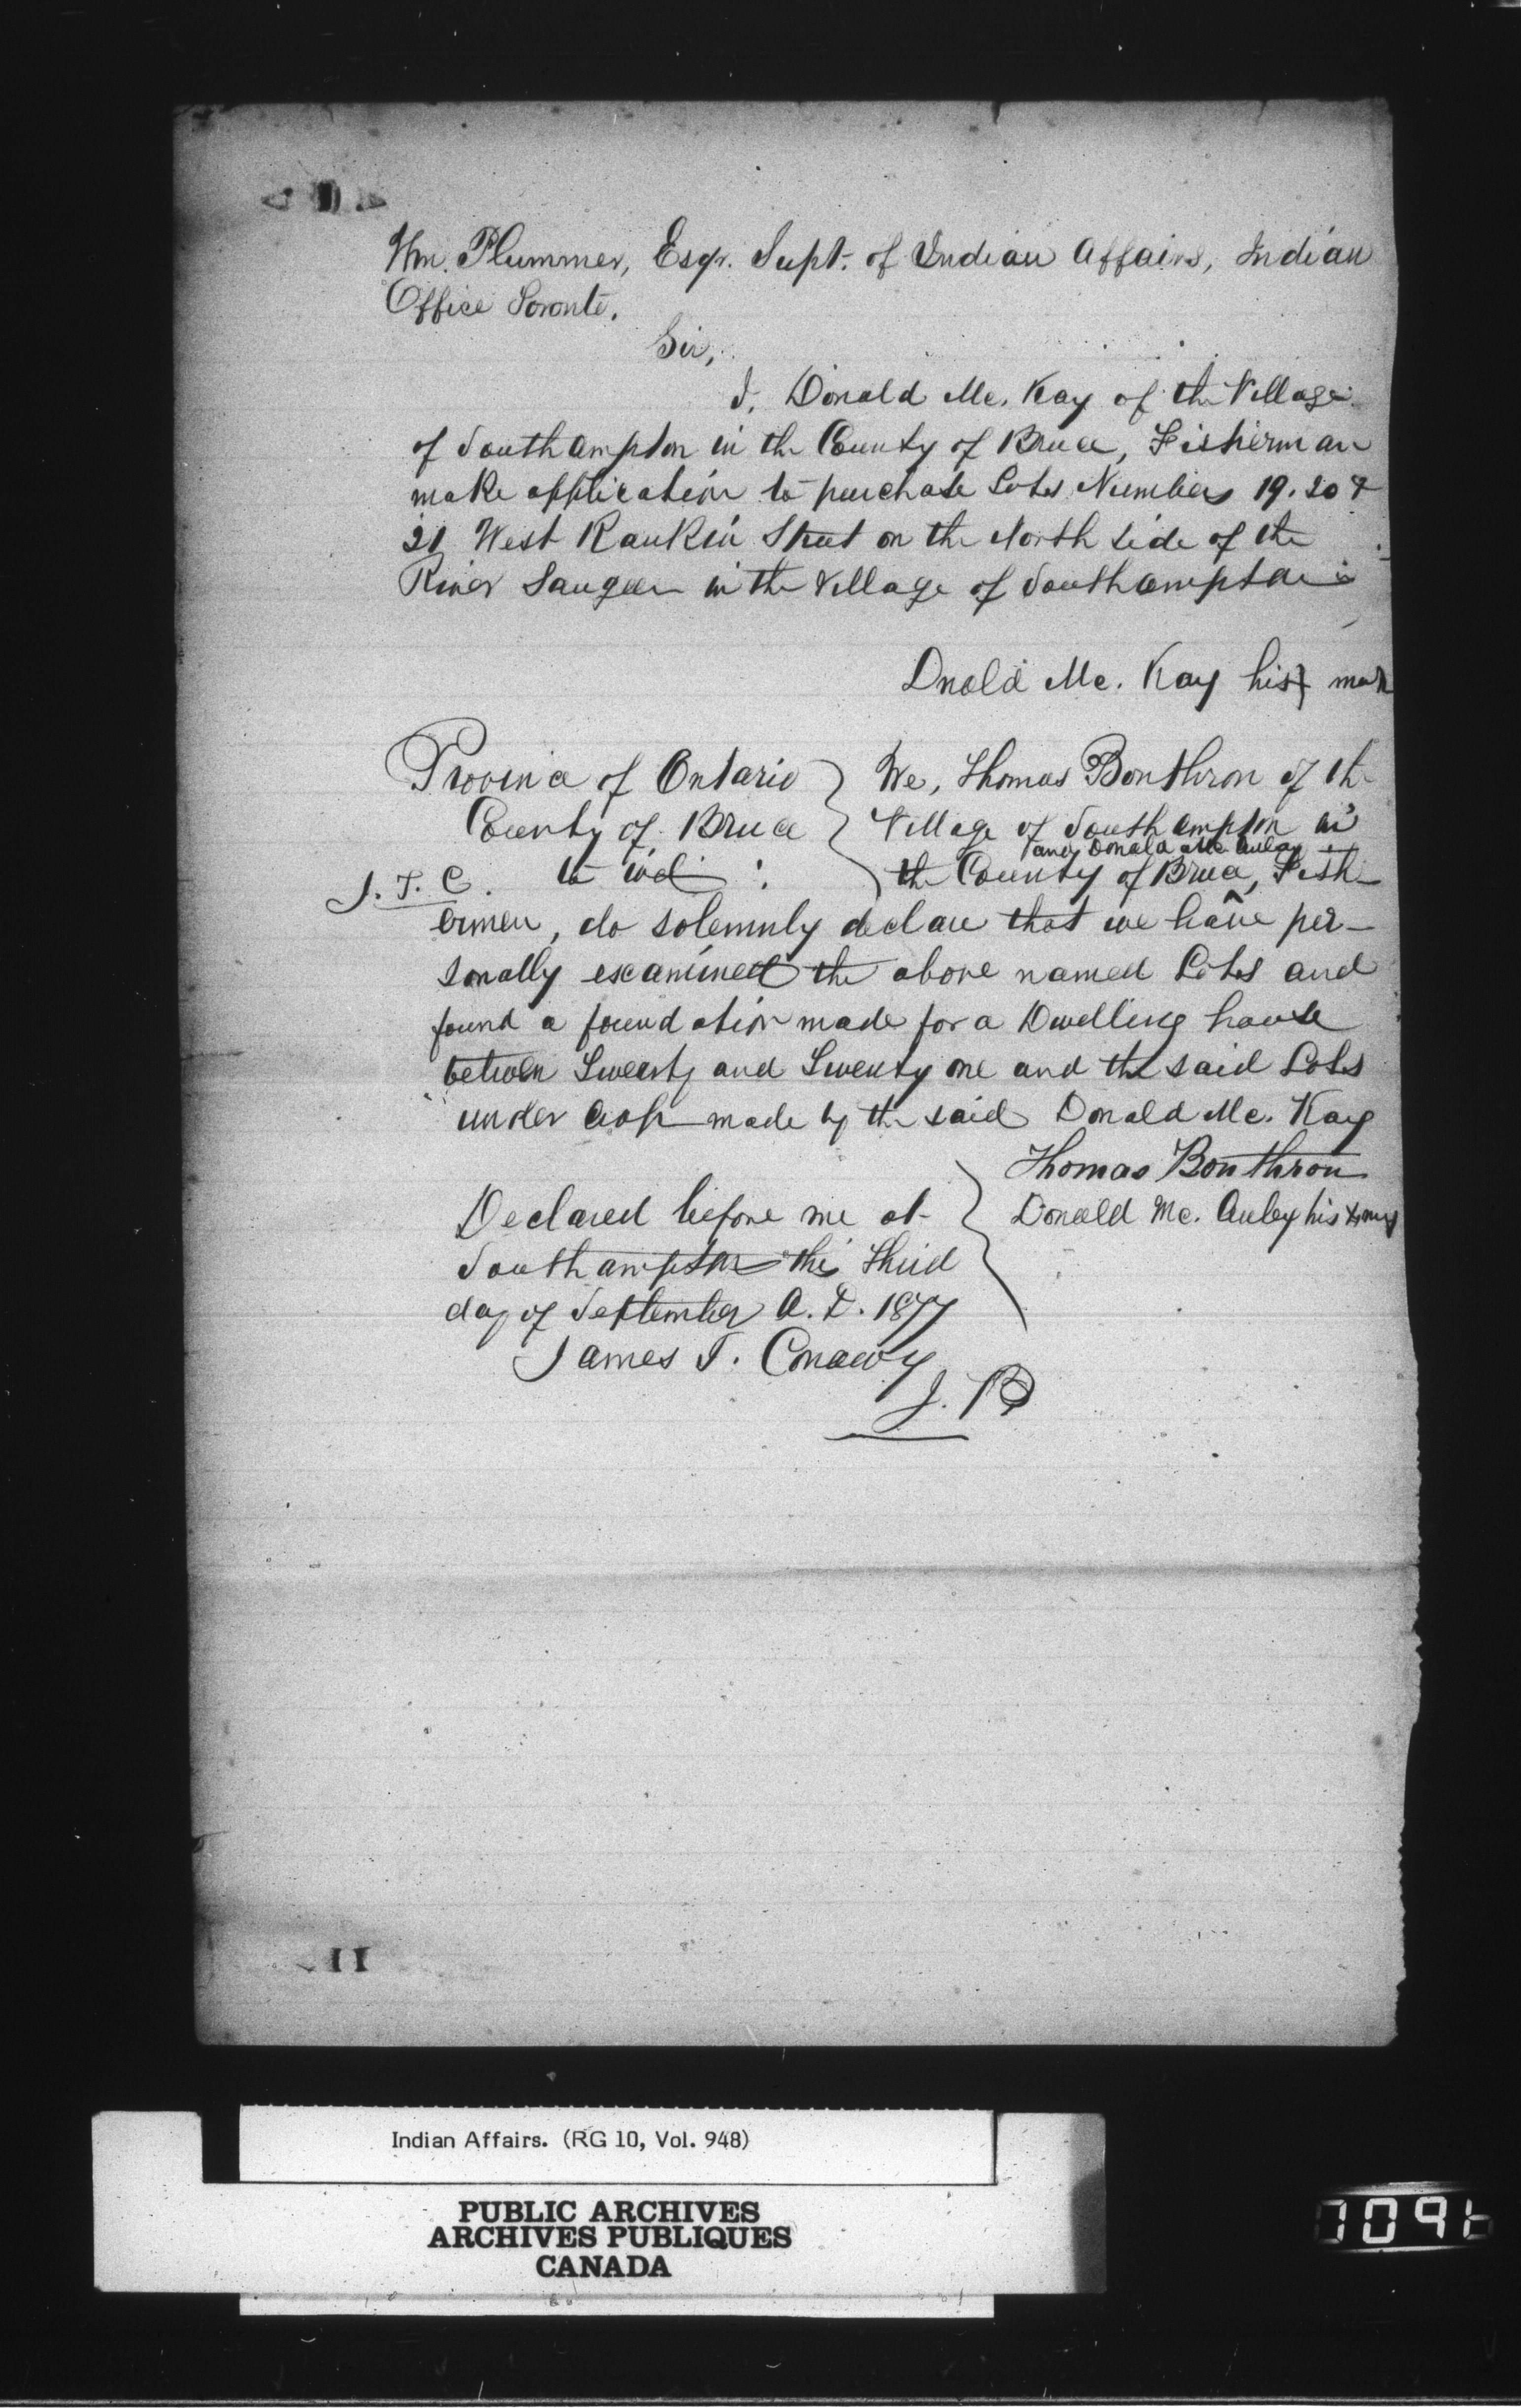 Wm. Plummer, Esqr. Supt. of Indian Affairs, Indian
Office Toronto.
Sir,
I, Donald Mc. Kay of the Village
of Southampton in the County of Bruce, Fisherman
make application to purchase Lots Numbers 19. 20 &
21 West Rankin Street on the North side of the
River Saugeen in the Village of Southampton
Dnold Mc. Kay his x mark
Province of Ontario
County of Bruce
to wit :
J. T. C.
We, Thomas Bonthron of the
Village of Southampton in
and Donald Mc Aulay
the County of Bruce, Fish-
ermen, do solemnly declare that we have per-
sonally examined the above named Lots and
found a foundation made for a Dwelling house
between Twenty and Twenty one and the said Lots
under crop made by the said Donald Mc. Kay
Thomas Bonthron
Donald Mc. Auley his x
Declared before me at
Southampton this third
day of September A. D. 1877
James T. Conaway
J. P
11
Indian Affairs. (RG 10, Vol. 948)
PUBLIC ARCHIVES
ARCHIVES PUBLIQUES
CANADA